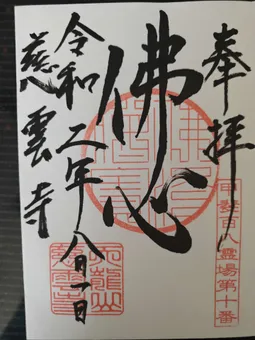 奉拝
甲斐百八霊場第十番
佛心
令和二年八月一日
慈雲寺
天龍山
慈雲寺